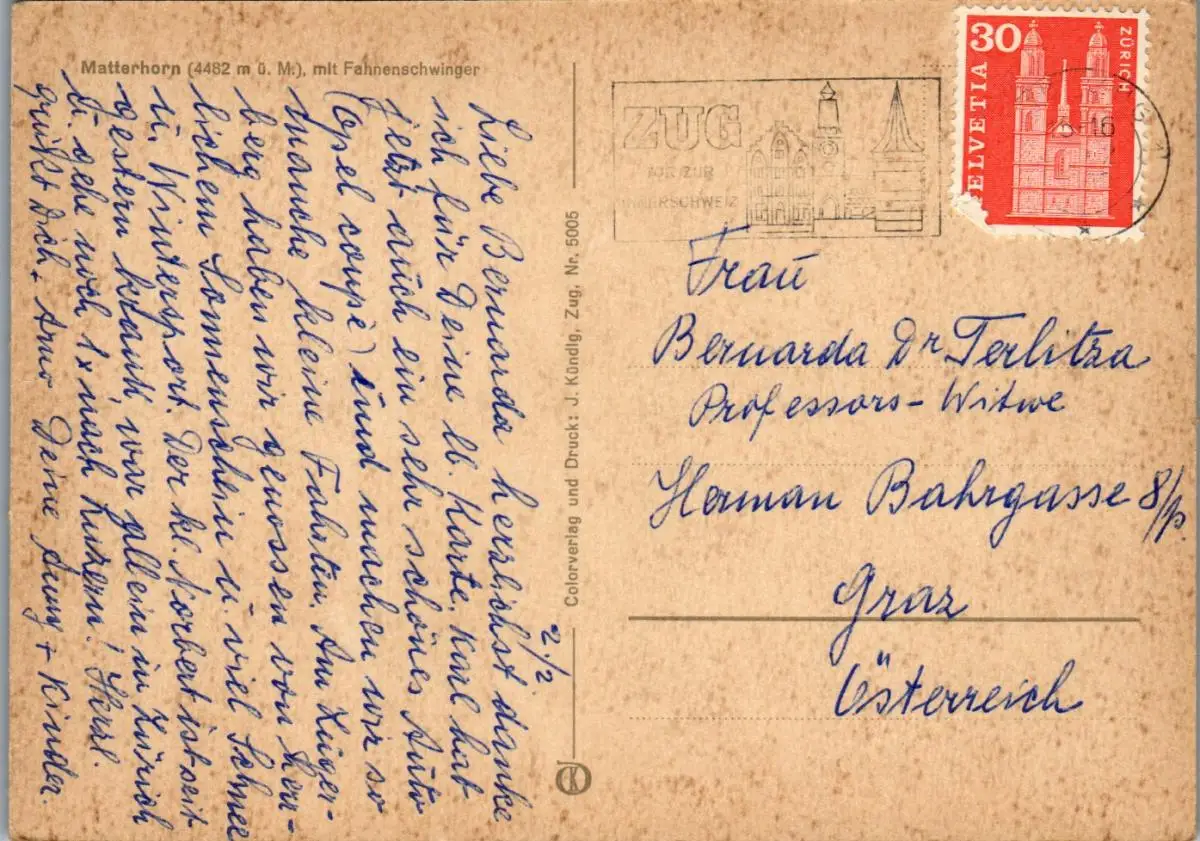 Matterhorn (4482 m ü. M.), mit Fahnenschwinger
2./2
Liebe Bernarda herzlichst danke
ich für Deine lb. Karte. Karl hat
jetzt auch ein sehr schönes Auto
(Opel coupé) und machen wir so
manche kleine Fahrten. Am Zuger-
berg haben wir genossen von herr-
lichem Sonnenschein u. viel Schnee
u. Wintersport. Der kl. Norbert ist seit
gestern krank, war allein in Zürich
u. gehe noch 1x nach Luzern! Herzl.
grüßt Dich, Arno Deine Anny + Kinder.
Colorverlag und Druck: J. Kündig, Zug, Nr. 5005
ZUG
TOR ZUR
INNERSCHWEIZ
30
HELVETIA
ZÜRICH
16
Frau
Bernarda Dr Terlitza
Professors-Witwe
Herman Bahrgasse 8/p.
Graz
Österreich